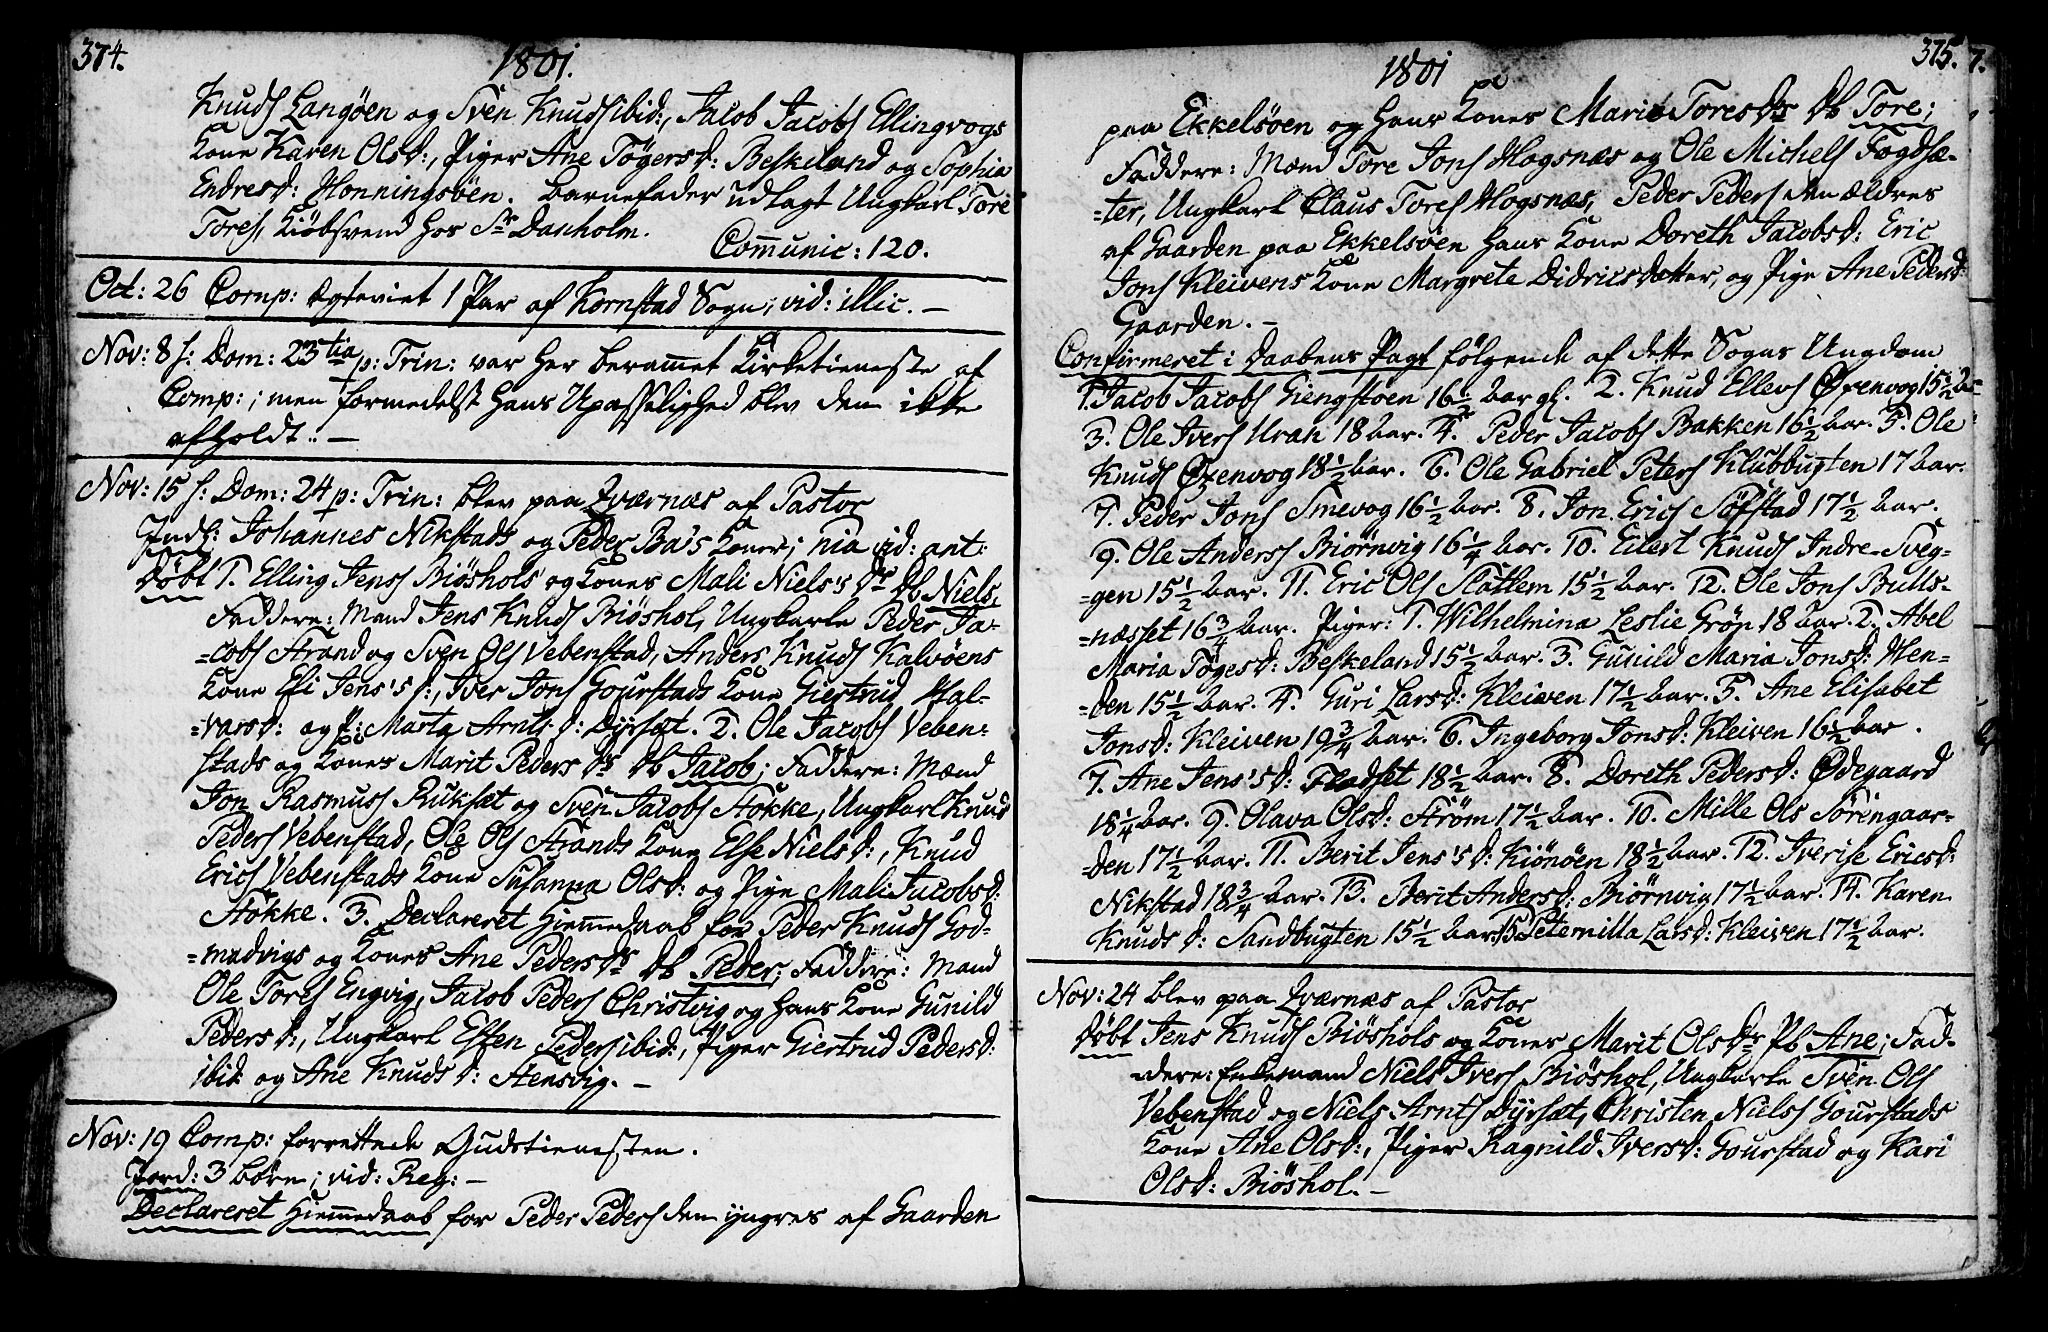 374.
1801.
Knuds Langöen og Sven Knuds ibid:, Jacob Jacobs Ellingvogs
Kone Karen Olsd:, Piger Ane Tögersd: Beskeland og Sophia
Endresd: Honningsöen. Barnefader udlagt Ungkarl Tore
Tores, Kiöbsvend hos Sr Danholm.
Communic: 120.
Oct: 26 Comp: Ægteviet 1 Par af Kornstad Sogn; vid: illic. —
Nov: 8 s: Dom: 23tia p: Trin: var her berammet Kirketieneste af
Comp:; men formedelst hans Upasselighed blev den ikke
afholdt. —
Nov: 15 s: Dom: 24 p: Trin: blev paa Qværnæs af Pastor
Indl: Johannes Nikstads og Peder Bæ's Koner; nia vid: ant:
Döbt 1. Elling Jens Biöshols og Kones Mali Niels's Dr Db Niels,
Faddere: Mand Jens Knuds Biöshol, Ungkarle Peder Ja-
=cobs Strand og Sven Ols Vebenstad, Anders Knuds Kalvöens
Kone Eli Jens's d:, Iver Jons Gourstads Kone Giertrud Hal-
=varsd: og P: Marta Arnts d: Dyrsæt. 2. Ole Jacobs Veben-
stads og Kones Marit Peders Ds Db Jacob; Faddere: Mænd
Jon Rasmuss Ruksæt og Sven Jacobs Stokke, Ungkarl Knud
Peders Vebenstad, Ole Ols Strands Kone Else Nielsd:, Knud
Erics Vebenstads Kone Susanna Olsd: og Pige Mali Jacobsd:
Stokke. 3. Declareret Hiemmedaab for Peder Knuds God-
=madvigs og Kones Ane Peders Ds Db Peder; Faddere: Mand
Ole Tores Engvig, Jacob Peders Christvig og hans Kone Gunild
Peders d:, Ungkarl Esten Peders ibid:, Piger Giertrud Pedersd:
ibid: og Ane Knuds d: Stensvig. —
Nov: 19 Comp: forrettede Gudstienesten.
Jord: 3 börn; vid: Reg: —
Declareret Hiemmedaab for Peder Peders den yngres af Gaarden
375.
7.
1801
paa Ekkelsöen og hans Kones Marit Tores Ds Db Tore;
Faddere: Mænd Tore Jons Hogsnæs og Ole Michels Fogdsæ-
=ter, Ungkarl Claus Tores Hogsnæs, Peder Peders den ældres
af Gaarden paa Ekkelsöen hans Kone Doreth Jacobsd: Eric
Jons Kleivens Kone Margrete Didrics datter, og Pige Ane Pedersd:
Gaarden. —
Confirmeret i Daabens Pagt fölgende af dette Sogns Ungdom
1. Jacob Jacobs Giengstöen 16 1/2 Aar gl. 2. Knud Ellevs Øxenvog 15 1/2 Aar
3. Ole Ivers Urah 18 Aar. 4. Peder Jacobs Bakken 16 1/2 Aar. 5. Ole
Knuds Øxenvog 18 1/2 Aar. 6. Ole Gabriel Peters Klubbugten 17 Aar.
7. Peder Jons Smevog 16 1/2 Aar. 8. Jon Erics Söfstad 17 1/2 Aar.
9. Ole Anders Biörnvig 16 1/4 Aar. 10. Eilert Knuds Indre-Sveg-
=gen 15 1/2 Aar. 11. Eric Ols Slatlem 15 1/2 Aar. 12. Ole Jons Bulls-
=næsset 16 3/4 Aar. Piger: 1. Wilhelmina Leslie Grön 18 Aar. 2. Abel
Maria Tögesd: Beskeland 15 1/2 Aar. 3. Gunild Maria Jonsd: Hen-
=den 15 1/2 Aar. 4. Guri Larsd: Kleiven 17 1/2 Aar. 5. Ane Elisabet
Jonsd: Kleiven 19 3/4 Aar. 6. Ingeborg Jonsd: Kleiven 16 1/2 Aar.
7. Ane Jens's d: Fladset 18 1/2 Aar. 8. Doreth Pedersd: Ødegaard
18 1/4 Aar. 9. Olava Olsd: Ström 17 1/2 Aar. 10. Mille Ols Sörengaar-
=den 17 1/2 Aar. 11. Berit Jens's d: Kiönöen 18 1/2 Aar. 12. Iverise Ericsd:
Nikstad 18 3/4 Aar. 13. Berit Anders d: Biörnvig 17 1/2 Aar. 14. Karen
Knuds d: Sandbugten 15 1/2 Aar. 15. Peternilla Larsd: Kleiven 17 1/2 Aar.
Nov: 24 blev paa Qværnæs af Pastor
Döbt Jens Knuds Biöshols og Kones Marit Ols Dr Pb Ane; Fad-
dere: Enkemand Niels Ivers Biöshol, Ungkarle Sven Ols
Vebenstad og Niels Arnts Dyrsæt, Christen Niels Gourstads
Kone Ane Olsd:, Piger Ragnild Iversd: Gourstad og Kari
Olsd: Biöshol. —